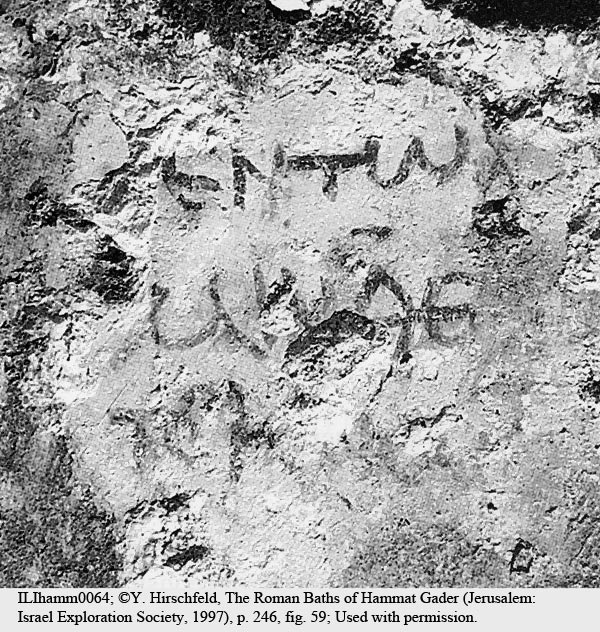 ЄΝΤѠ
ILIhamm0064; ©Y. Hirschfeld, The Roman Baths of Hammat Gader (Jerusalem:
Israel Exploration Society, 1997), p. 246, fig. 59; Used with permission.